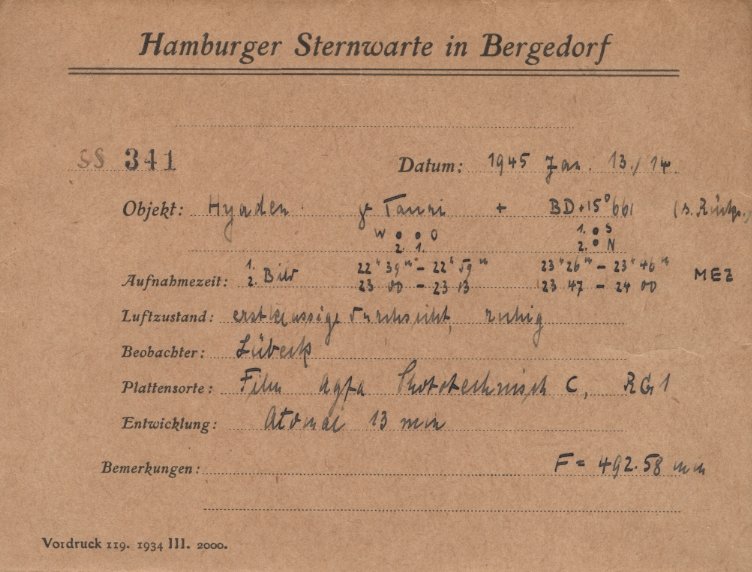 Hamburger Sternwarte in Bergedorf
SS 341 Datum: 1945 Jan. 13./14
Objekt: Hyaden γ Tauri + BD+15° 661 (s. Rücks.)
W • • O 1. • S
2. 1. 2. • N
Aufnahmezeit: 1. Bild 22ʰ 39ᵐ – 22ʰ 59ᵐ 23ʰ 26ᵐ – 23ʰ 46ᵐ MEZ
2. 23 00 – 23 13 23 47 – 24 00
Luftzustand: erstklassige Durchsicht, ruhig
Beobachter: Lübeck
Plattensorte: Film Agfa Phototechnisch C, RG1
Entwicklung: Atomal 13 min
Bemerkungen: F = 492.58 mm
Vordruck 119. 1934 III. 2000.